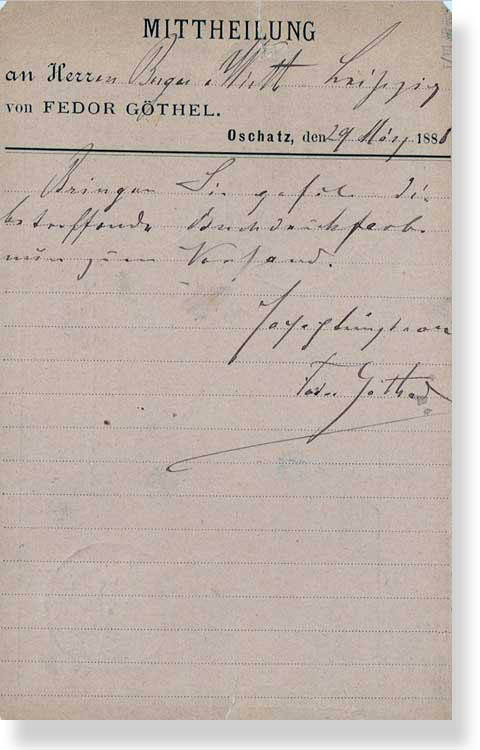 MITTHEILUNG
an Herren Berger & Wirth Leipzig
von FEDOR GÖTHEL.
Oschatz, den 29 März 1888
Bringen Sie gefäl. die
betreffende Buchdruckfarbe
nun zum Versand.
Hochachtungsvoll
Fedor Göthel